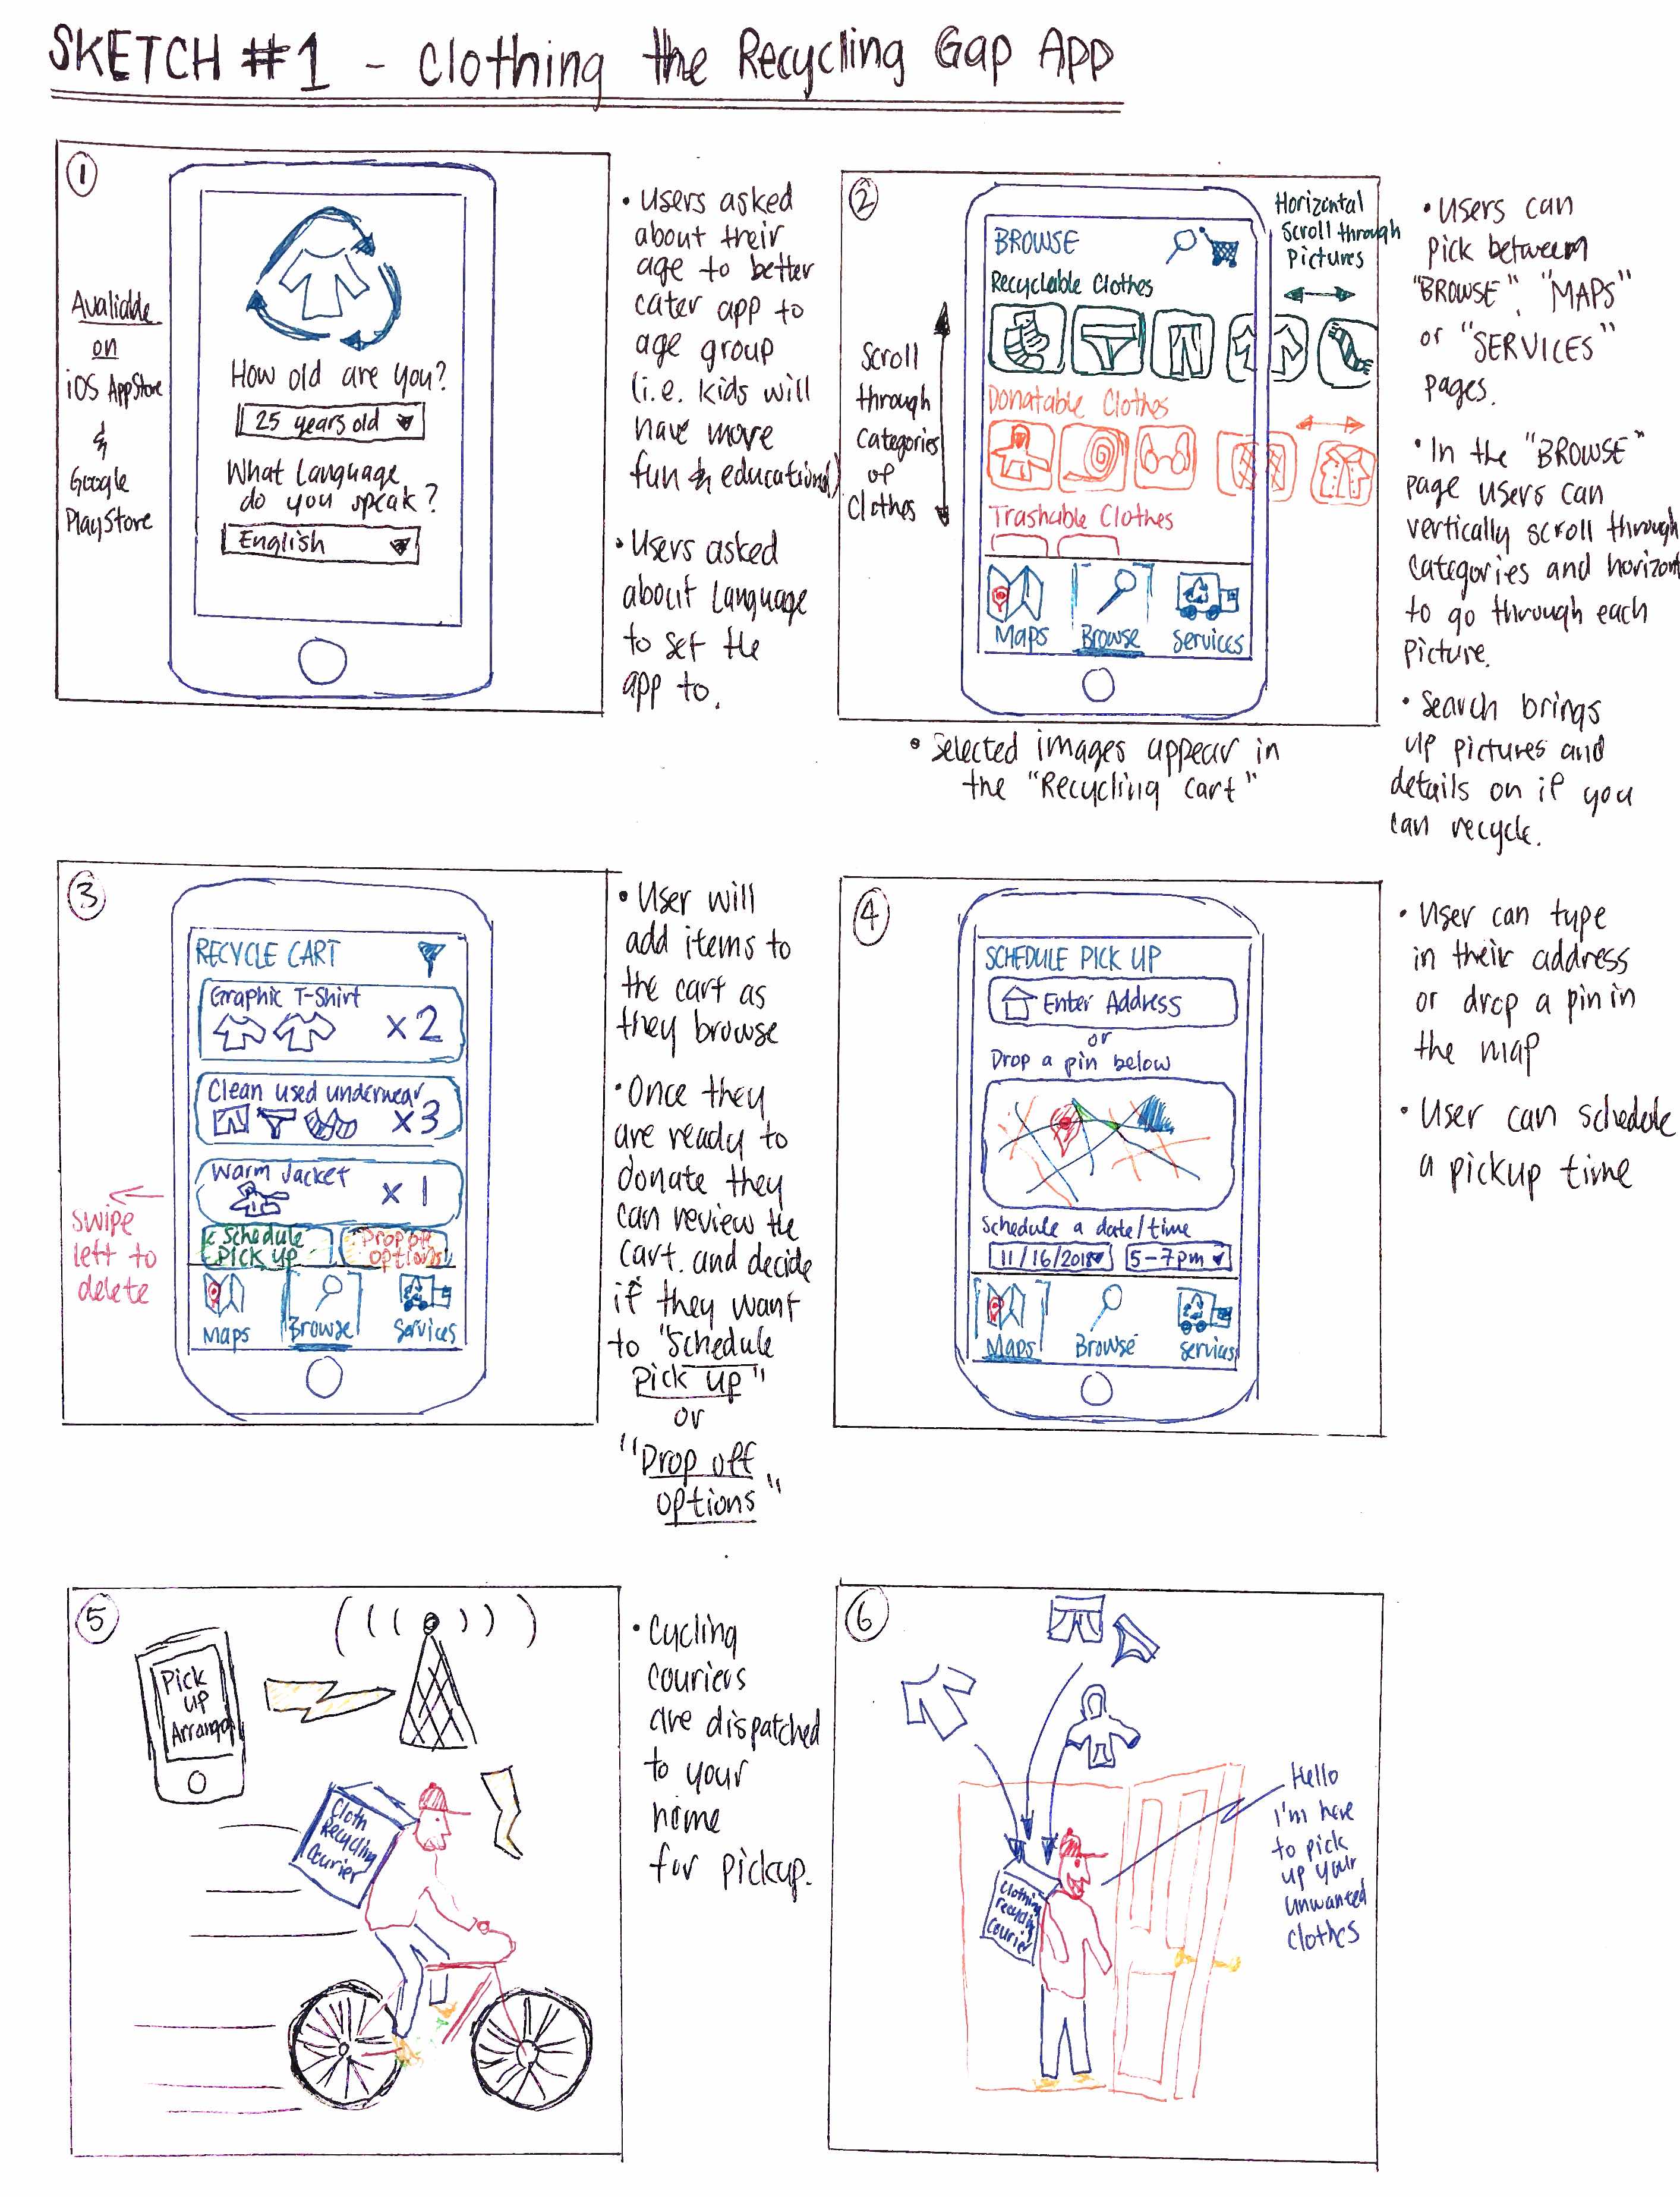 SKETCH #1 - Clothing the Recycling Gap App
1
Avaliable
on
iOS AppStore
&
Google
PlayStore
How old are you?
25 years old
What Language
do you speak?
English
• Users asked
about their
age to better
cater app to
age group
(i.e. kids will
have more
fun & educational)
• Users asked
about Language
to set the
app to.
2
Scroll
through
Categories
of
Clothes
BROWSE
Recyclable Clothes
Donatable Clothes
Trashable Clothes
Maps
Browse
Services
Horizontal
Scroll through
Pictures
• Selected images appear in
the "Recycling cart"
• Users can
pick between
"BROWSE", "MAPS"
or "SERVICES"
pages.
• In the "BROWSE"
page users can
vertically scroll through
categories and horizont
to go through each
picture.
• Search brings
up pictures and
details on if you
can recycle.
3
swipe
left to
delete
RECYCLE CART
Graphic T-Shirt
x2
Clean used underwear
x3
Warm Jacket
x1
Schedule
Pick up
Drop off
options
Maps
Browse
Services
• User will
add items to
the cart as
they browse
• Once they
are ready to
donate they
can review the
cart. and decide
if they want
to "Schedule
Pick up"
or
"Drop off
options"
4
SCHEDULE PICK UP
Enter Address
or
Drop a pin below
Schedule a date/time
11/16/2018
5-7pm
Maps
Browse
Services
• User can type
in their address
or drop a pin in
the map
• User can schedule
a pickup time
5
Pick
up
Arranged
Cloth
Recycling
Courier
• Cycling
couriers
are dispatched
to your
home
for pickup.
6
Clothing
recycling
Courier
Hello
I'm here
to pick
up your
unwanted
clothes